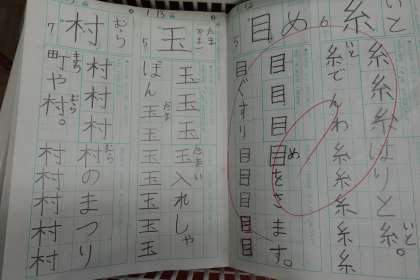 糸 いと 6
糸糸糸はりと糸。
いと
糸でんわ糸糸糸糸糸
いと
目 め 5
目目目目をさます。
め
目ぐすり目目目目目
玉 たま 5
玉玉玉玉入れしゃ
たま い
ぼん玉玉玉玉玉玉玉
だま
村 むら 7
村村村村のまつり
むら
町や村。村村村村村
まち むら